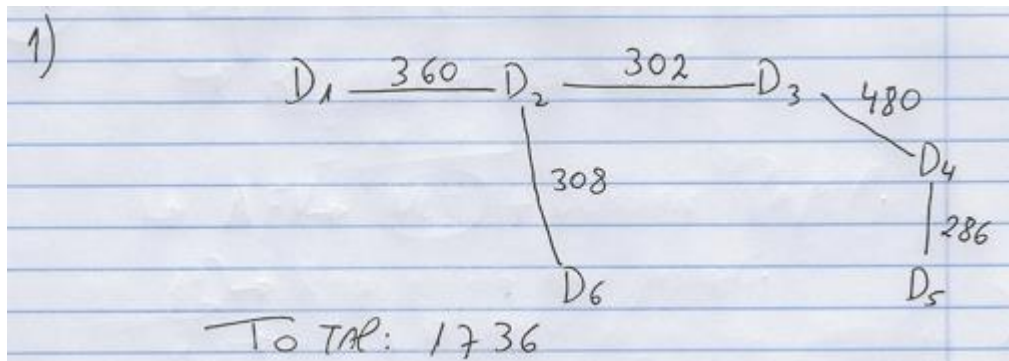 1)
D1 360 D2 302 D3 480
D4
308
286
D6 D5
TOTAL: 1736